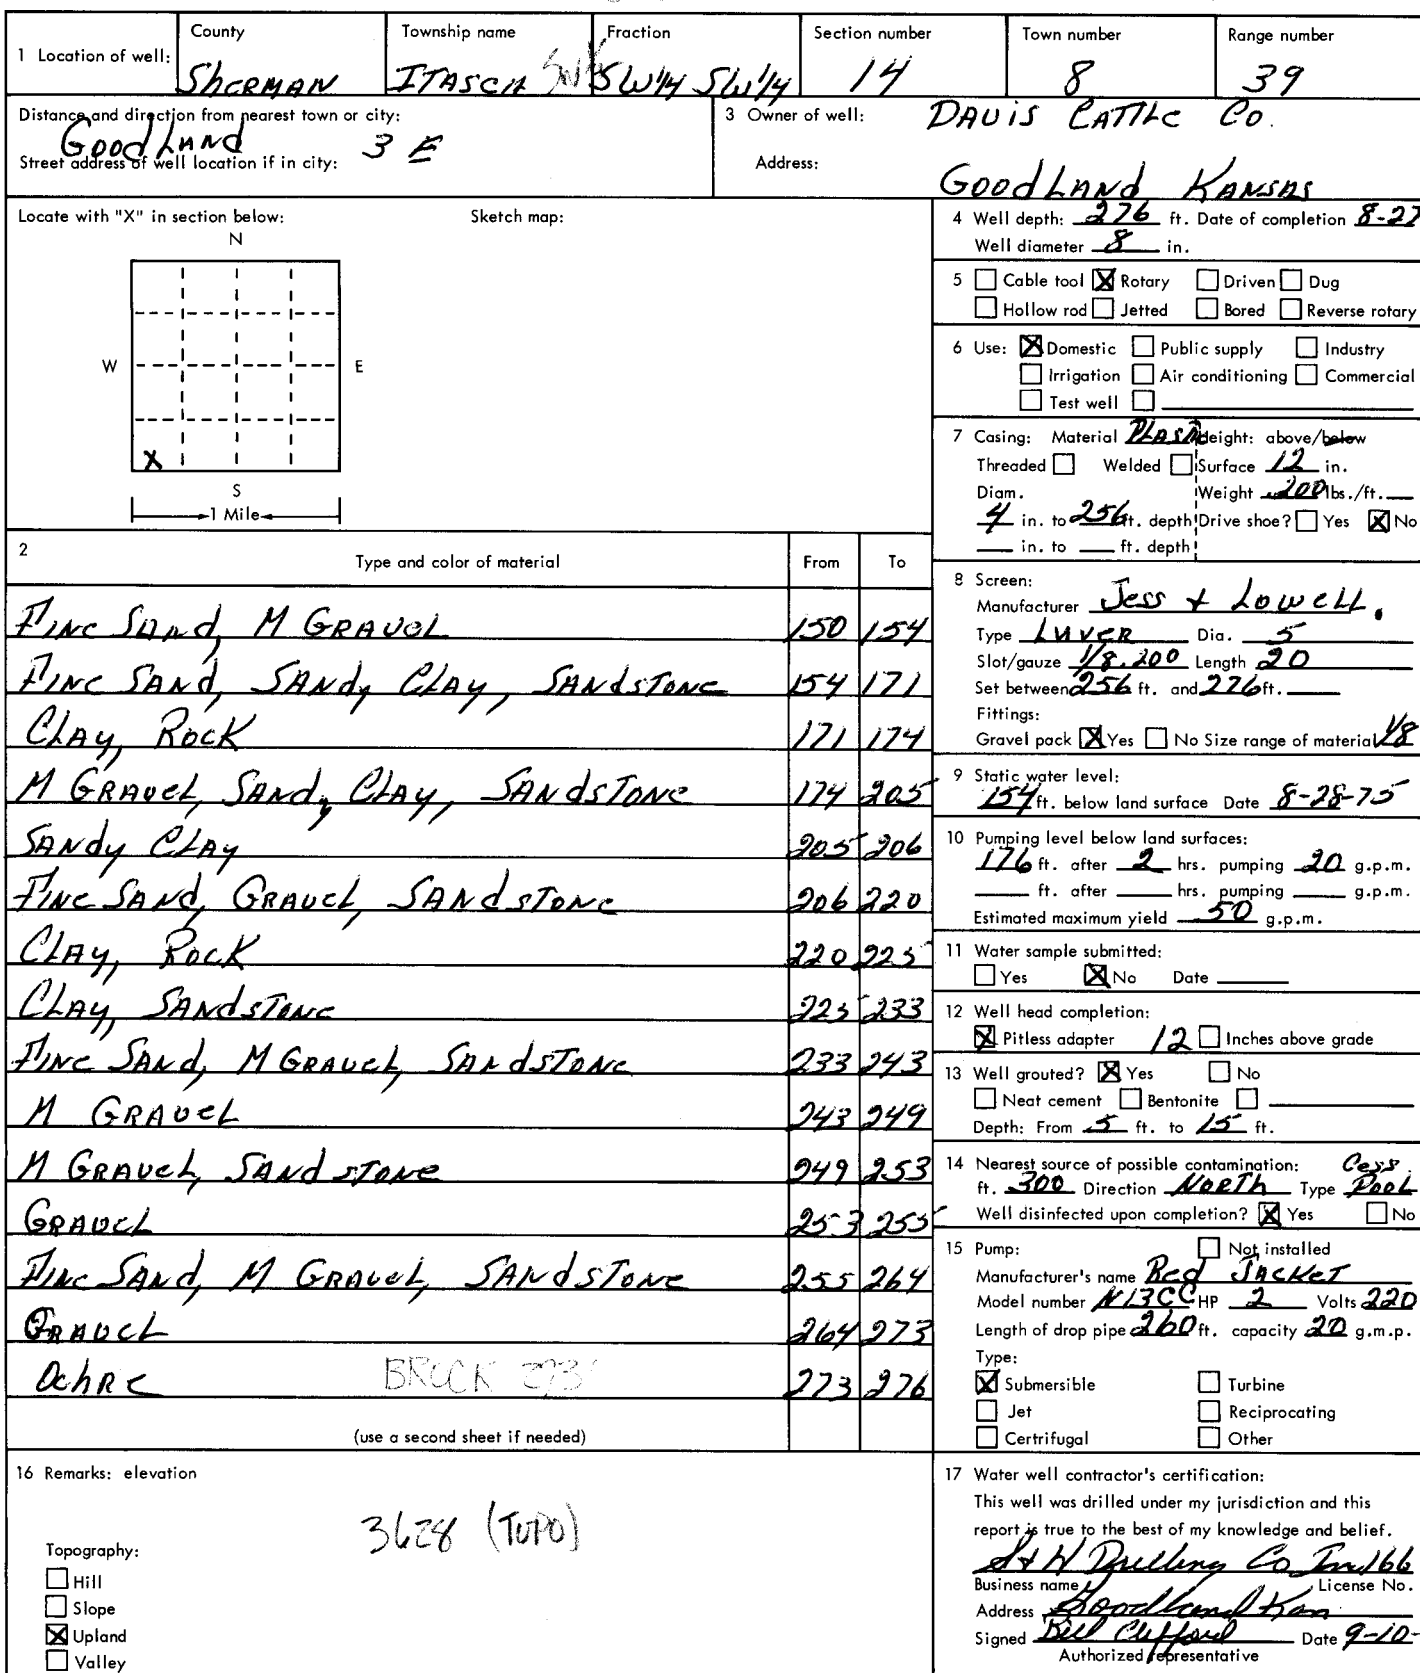 1 Location of well: County Township name Fraction Section number Town number Range number
Sherman Itasca SW1/4 SW1/4 14 8 39
Distance and direction from nearest town or city: 3 Owner of well: Davis Cattle Co.
Goodland 3 E
Street address of well location if in city: Address: Goodland Kansas
Locate with "X" in section below: Sketch map:
N
W E
X
S
1 Mile
4 Well depth: 276 ft. Date of completion 8-27
Well diameter 8 in.
5 Cable tool X Rotary Driven Dug
Hollow rod Jetted Bored Reverse rotary
6 Use: X Domestic Public supply Industry
Irrigation Air conditioning Commercial
Test well
7 Casing: Material Plastic Height: above/below
Threaded Welded Surface 12 in.
Diam. Weight .200 lbs./ft.
4 in. to 256 ft. depth Drive shoe? Yes X No
in. to ft. depth
2 Type and color of material From To
Fine Sand, M Gravel 150 154
Fine Sand, Sandy Clay, Sandstone 154 171
Clay, Rock 171 174
M Gravel, Sandy Clay, Sandstone 174 205
Sandy Clay 205 206
Fine Sand, Gravel, Sandstone 206 220
Clay, Rock 220 225
Clay, Sandstone 225 233
Fine Sand, M Gravel, Sandstone 233 243
M Gravel 243 249
M Gravel, Sandstone 249 253
Gravel 253 255
Fine Sand, M Gravel, Sandstone 255 264
Gravel 264 273
Ochre BROCK 273 273 276
(use a second sheet if needed)
8 Screen:
Manufacturer Jess + Lowell.
Type Luver Dia. 5
Slot/gauze 1/8.200 Length 20
Set between 256 ft. and 276 ft.
Fittings:
Gravel pack X Yes No Size range of material 1/8
9 Static water level:
154 ft. below land surface Date 8-28-75
10 Pumping level below land surfaces:
176 ft. after 2 hrs. pumping 20 g.p.m.
ft. after hrs. pumping g.p.m.
Estimated maximum yield 50 g.p.m.
11 Water sample submitted:
Yes X No Date
12 Well head completion:
X Pitless adapter 12 Inches above grade
13 Well grouted? X Yes No
Neat cement Bentonite
Depth: From 5 ft. to 15 ft.
14 Nearest source of possible contamination: Cess
ft. 300 Direction North Type Pool
Well disinfected upon completion? X Yes No
15 Pump: Not installed
Manufacturer's name Red Jacket
Model number N13CC HP 2 Volts 220
Length of drop pipe 260 ft. capacity 20 g.m.p.
Type:
X Submersible Turbine
Jet Reciprocating
Certrifugal Other
16 Remarks: elevation
3628 (TOPO)
Topography:
Hill
Slope
X Upland
Valley
17 Water well contractor's certification:
This well was drilled under my jurisdiction and this
report is true to the best of my knowledge and belief.
S+W Drilling Co Inc 166
Business name License No.
Address Goodland Kan
Signed Bill Clifford Date 9-10-
Authorized representative